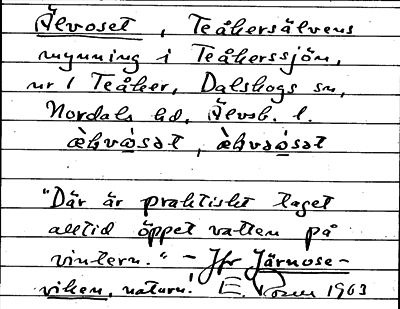 Älvoset, Teåkersälvens
mynning i Teåkerssjön,
nr 1 Teåker, Dalskogs sn,
Nordals hd, Älvsb. l.
"Där är praktiskt taget
alltid öppet vatten på
vintern." – Jfr Järnose-
viken, naturn! E. Rosen 1963